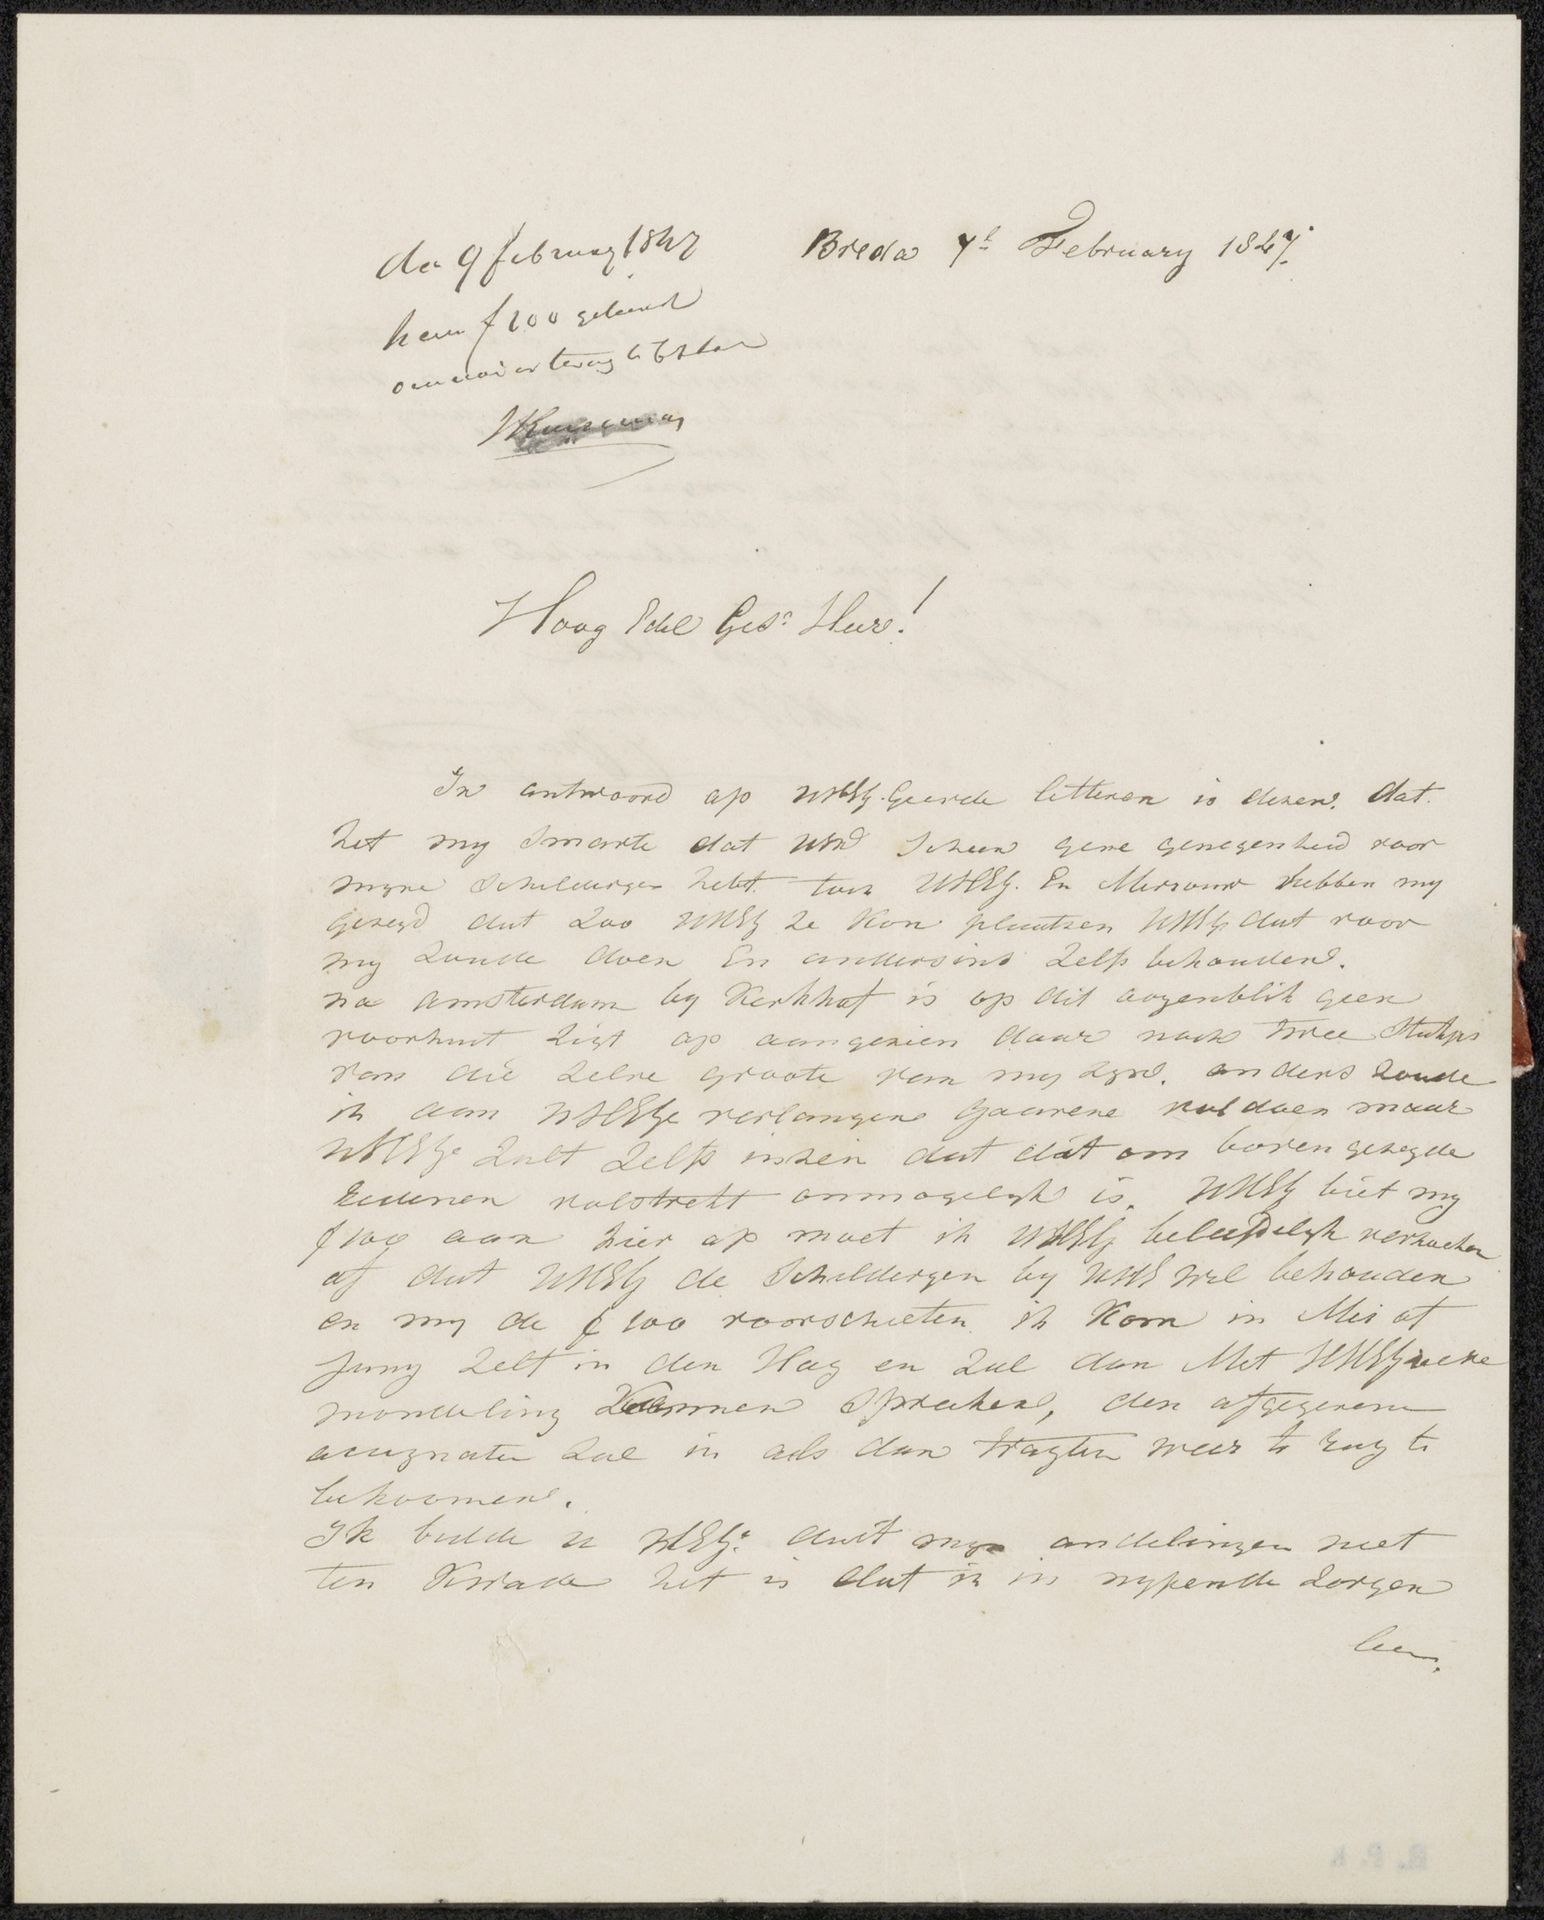 de 9 february 1847
hem f 100 geleend
om mij terug te
Breda 7e February 1847.
Hoog Edel Ges: Heer!
In antwoord op UHEG. Geerde letteren is dezen. dat.
het my Smarte dat UEd Scheen gene genegenheid voor
myne Schilderyen hebt. toch UHEG. En Mevrouw hebben my
gezegd dat Zoo UHEG ze Kon plaatsen UHEG dat voor
my Zoude doen En andersins Zelfs behouden.
na Amsterdam by Kerkhof is op dit oogenblik geen
vooruit Zigt op aangezien daar noch twee Stukjes
van die Zelve groote van my zyn. anders Zoude
ik aan UHEGe verlangens Gaarene voldoen maar
UHEGe Zult Zelfs inzien dat dat om boven gezegde
Redenen volstrekt onmogelyk is. UHEG biet my
f 100 aan hier op moet ik UHEG beleefdelyk verzoeken
of dat UHEG de Schilderyen by UHE wil behouden
en my de f 100 voorschieten ik Kom in Mei of
Juny Zelf in den Hag en Zal dan Met UHEG
mondeling Kunnen Spreken, den afgegevene
Zal ik als dan tragten weer te rug te
bekoomen.
Ik bidde u HEG: duit myn andelingen niet
ten Kwade het is dat ik in nypende Zorgen